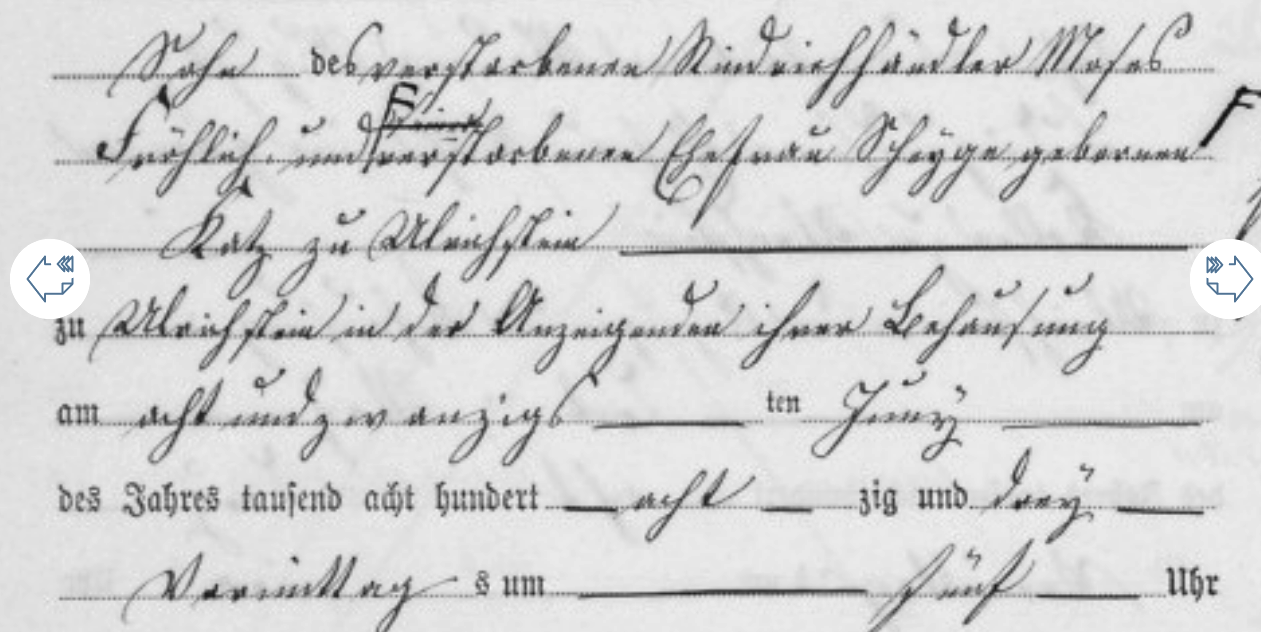 Sohn des verstorbenen Rindviehhändler Moses
Fröhlich und verstorbenen Ehefrau geborenen
Katz zu Ulrichstein
zu Ulrichstein in der Anzeigenden ihrer Behausung
am acht und zwanzigsten Juny
des Jahres tausend acht hundert achtzig und drey
Vormittags um fünf Uhr